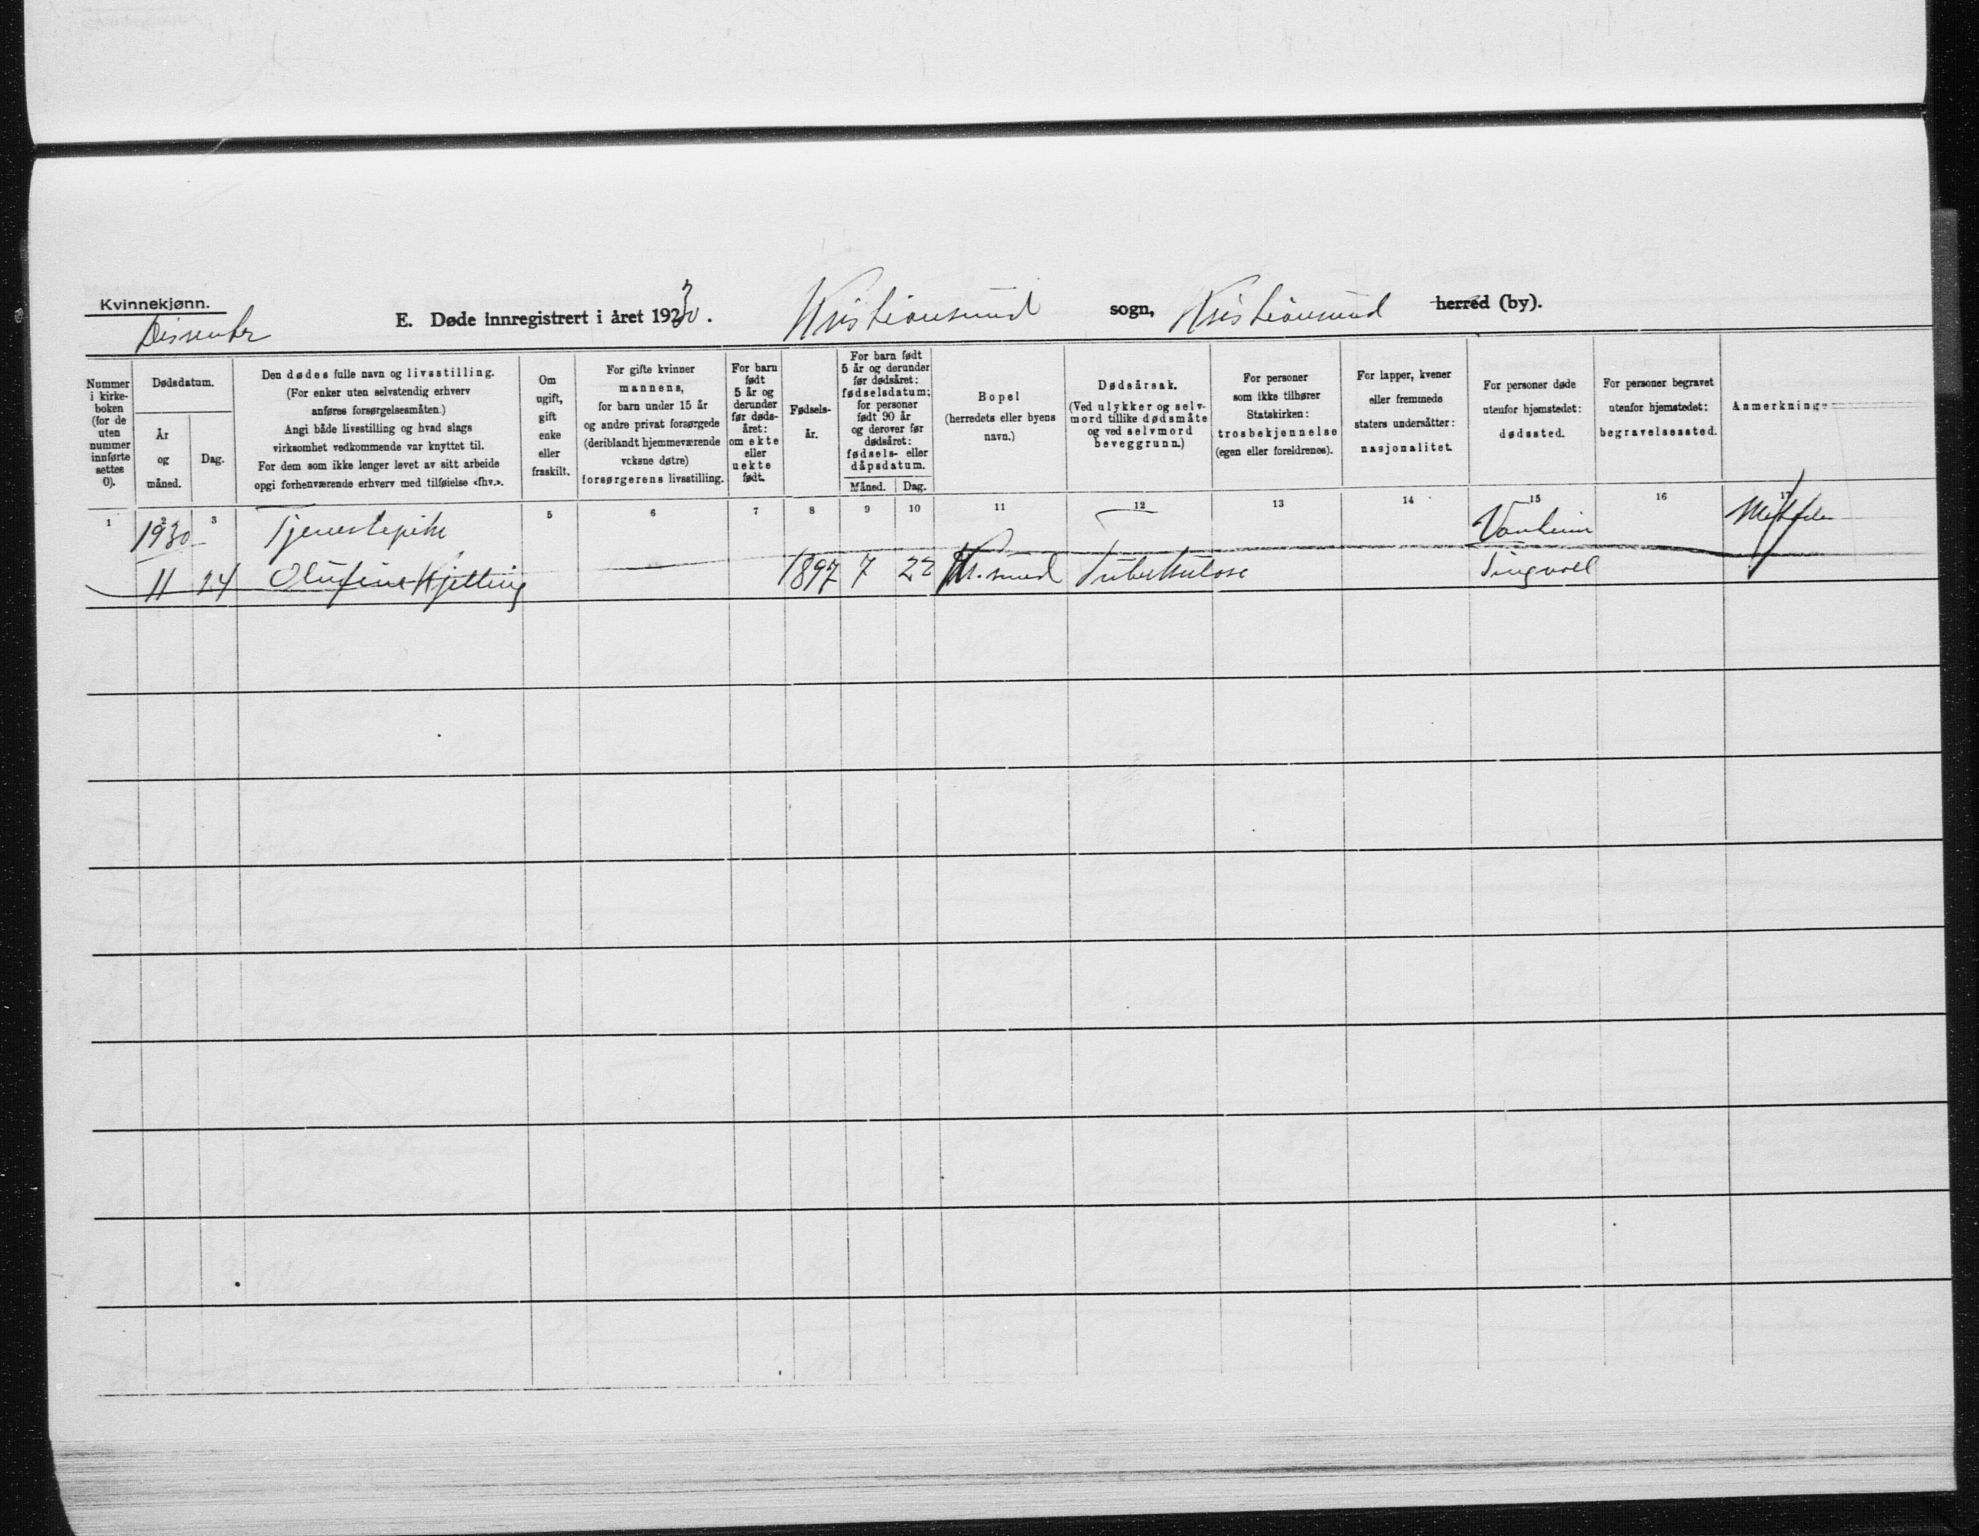 Kvinnekjønn.
Dissenter
E. Døde innregistrert i året 1930.
Kristiansund sogn, Kristiansund herred (by).
Nummer i kirke-boken (for de uten nummer innførte settes 0).
Dødsdatum.
År og måned.
Dag.
Den dødes fulle navn og livsstilling.
(For enker uten selvstendig erhverv
anføres forsørgelsesmåten.)
Angi både livsstilling og hvad slags
virksomhet vedkommende var knyttet til.
For dem som ikke lenger levet av sitt arbeide
opgi forhenværende erhverv med tilføielse «fhv.».
Om
ugift,
gift
enke
eller
fraskilt.
For gifte kvinner
mannens,
for barn under 15 år
og andre privat forsørgede
(deriblandt hjemmeværende
voksne døtre)
forsørgerens livsstilling.
For barn
født
5 år og
derunder
før døds-
året:
om ekte
eller
uekte
født.
Fødsels-
år.
For barn født
5 år og derunder
før dødsåret:
fødselsdatum;
for personer
født 90 år
og derover før
dødsåret:
fødsels- eller
dåpsdatum.
Måned. Dag.
Bopel
(herredets eller byens
navn.)
Dødsårsak.
(Ved ulykker og selv-
mord tillike dødsmåte
og ved selvmord
beveggrunn.)
For personer
som ikke tilhører
Statskirken:
trosbekjennelse
(egen eller foreldrenes).
For lapper, kvener
eller fremmede
staters undersåtter:
nasjonalitet.
For personer døde
utenfor hjemstedet:
dødssted.
For personer begravet
utenfor hjemstedet:
begravelsessted.
Anmerkninger
1 2 3 5 6 7 8 9 10 11 12 13 14 15 16 17
1930 Tjenestepike
11 24 Olufine Kjelling 1897 7 22 Kr.sund Tuberkulose Tingvoll